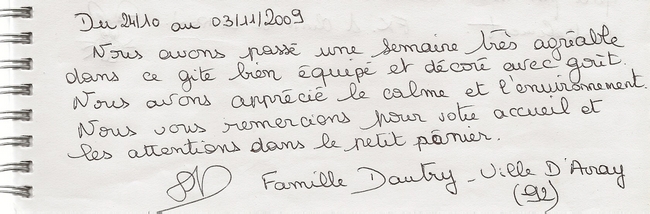 Du 24/10 au 03/11/2009
Nous avons passé une semaine très agréable
dans ce gîte bien équipé et décoré avec goût.
Nous avons apprécié le calme et l'environnement.
Nous vous remercions pour votre accueil et
les attentions dans le petit panier.
Famille Dautry - Ville D'Avray
(92)